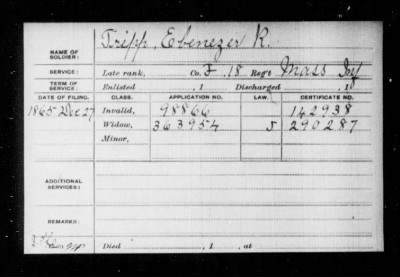 NAME OF SOLDIER: Tripp, Ebenezer R.
SERVICE: Late rank, Co. F, 18 Reg't Mass Inf
TERM OF SERVICE: Enlisted , 1 Discharged , 1
DATE OF FILING. CLASS. APPLICATION NO. LAW. CERTIFICATE NO.
1865 Dec 27 Invalid, 98866 142938
Widow, 363954 J 290287
Minor,
ADDITIONAL SERVICES:
REMARKS:
Died , 1 , at